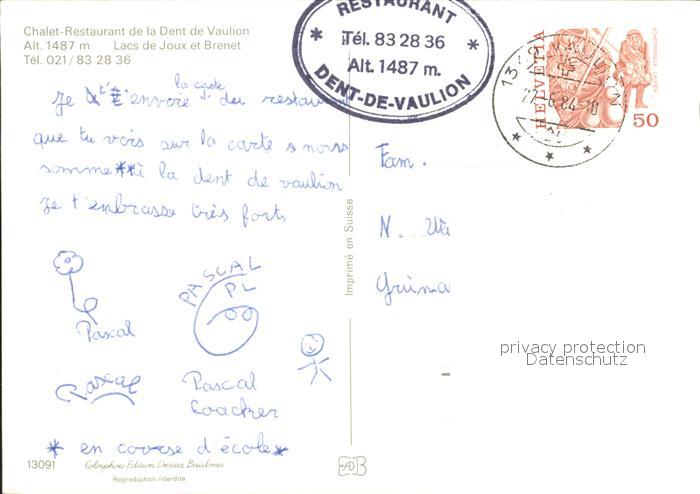 Chalet-Restaurant de la Dent de Vaulion
Alt. 1487 m Lacs de Joux et Brenet
Tél. 021/83 28 36
RESTAURANT
* Tél. 83 28 36 *
Alt. 1487 m.
DENT-DE-VAULION
HELVETIA
50
la carte
Je t'envoie du restaurant
que tu vois sur la carte nous
somme à la dent de vaulion
Je t'enbrasse très forts
Fam.
N.
Imprimé en Suisse
PASCAL
PL
Pascal
Pascal
Pascal
* en course d'école *
privacy protection
Datenschutz
13091 Colorphoto Edition Deriaz Baulmes
Reproduction interdite